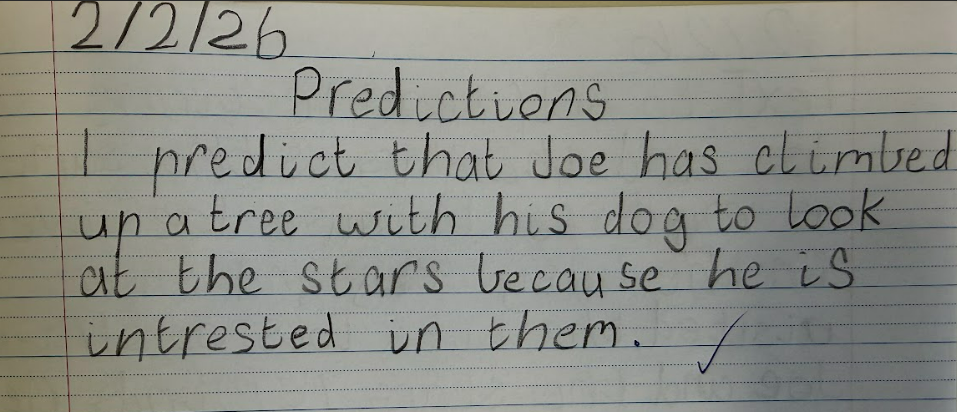 2/2/26
Predictions
I predict that Joe has climbed
up a tree with his dog to look
at the stars because he is
intrested in them.